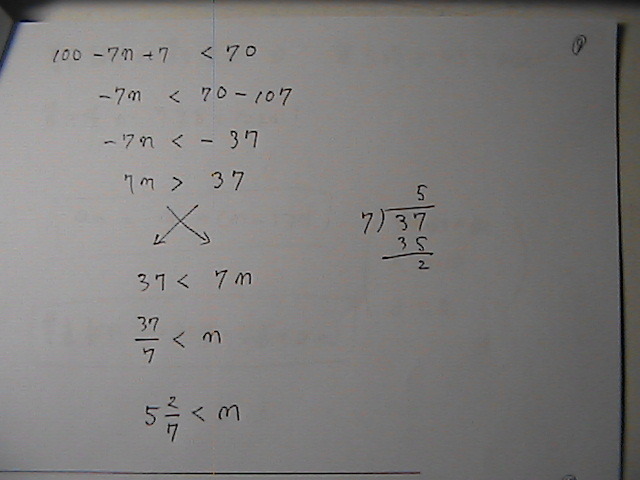 100 - 7n + 7 < 70
-7n < 70 - 107
-7n < - 37
7n > 37
37 < 7n
37/7 < n
5 2/7 < n
5
7) 37
35
2